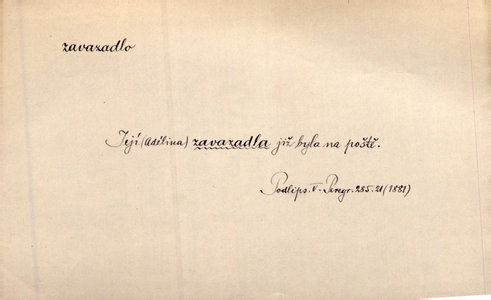 zavazadlo
Její (Adélina) zavazadla již byla na poště.
Podlips. V. Peregr. 285. 21 (1881)